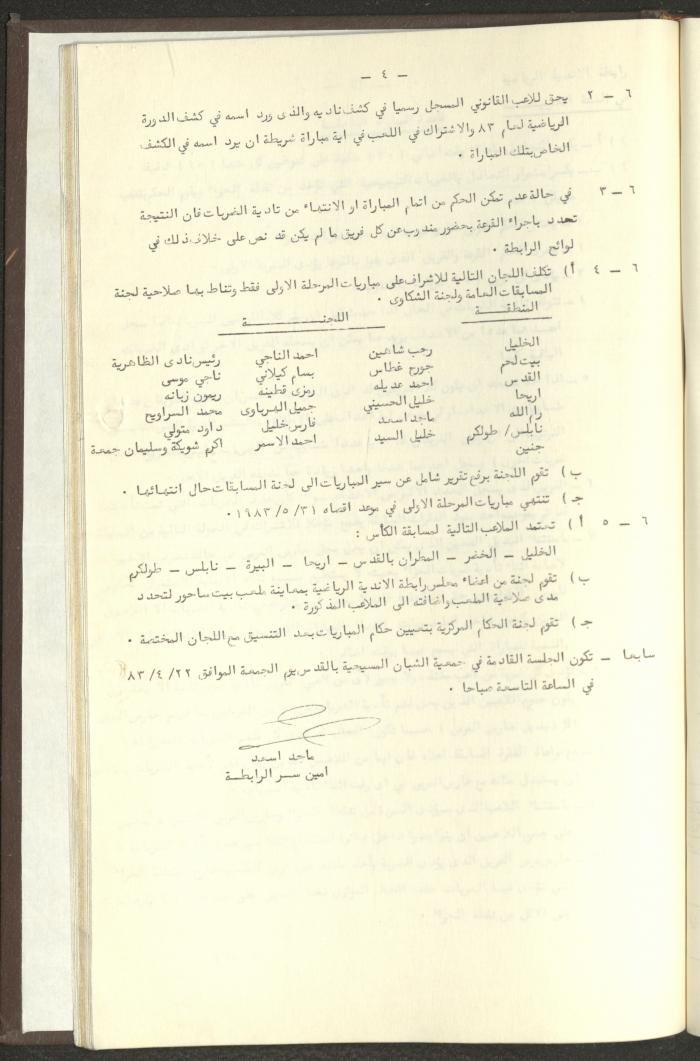 - ٤ -
٦ - ٢ يحق للاعب القانوني المسجل رسميا في كشف ناديه والذى ورد اسمه في كشف الدورة
الرياضية لعام ٨٣ والاشتراك في اللعب في اية مباراة شريطة ان يرد اسمه في الكشف
الخاص بتلك المباراة .
٦ - ٣ في حالة عدم تمكن الحكم من اتمام المباراة او الانتهاء من تادية الضربات فان النتيجة
تحدد باجراء القرعة بحضور مندوب عن كل فريق ما لم يكن قد نص على خلاف ذلك في
لوائح الرابطة .
٦ - ٤ أ) تكلف اللجان التالية للاشراف على مباريات المرحلة الاولى فقط وتناط بها صلاحية لجنة
المسابقات العامة ولجنة الشكاوى .
المنطقــة اللجنــــــــــة
الخليل رجب شاهين احمد الناجي رئيس نادى الظاهرية
بيت لحم جورج غطاس بسام كيلاني ناجي موسى
القدس احمد عديله رمزى قطينه ريمون زبانه
اريحا خليل الحسيني جميل البرباوى محمد السراويح
رام الله ماجد اسعد فارس خليل داود متولي
نابلس/ طولكرم خليل السيد احمد الاسمر اكرم شويكة وسليمان جمعة
جنين
ب) تقوم اللجنة برفع تقرير شامل عن سير المباريات الى لجنة المسابقات حال انتهائها .
جـ) تنتهي مباريات المرحلة الاولى في موعد اقصاه ١٩٨٣/٥/٣١ .
٦ - ٥ أ) تعتمد الملاعب التالية لمسابقة الكأس :
الخليل - الخضر - المطران بالقدس - اريحا - البيرة - نابلس - طولكرم
ب) تقوم لجنة من اعضاء مجلس رابطة الاندية الرياضية بمعاينة ملعب بيت ساحور لتحدد
مدى صلاحية الملعب واضافته الى الملاعب المذكورة .
جـ) تقوم لجنة الحكام المركزية بتعيين حكام المباريات بعد التنسيق مع اللجان المختصة .
سابعا - تكون الجلسة القادمة في جمعية الشبان المسيحية بالقدس يوم الجمعة الموافق ٨٣/٤/٢٢
في الساعة التاسعة صباحا .
ماجد اسعد
امين سر الرابطة